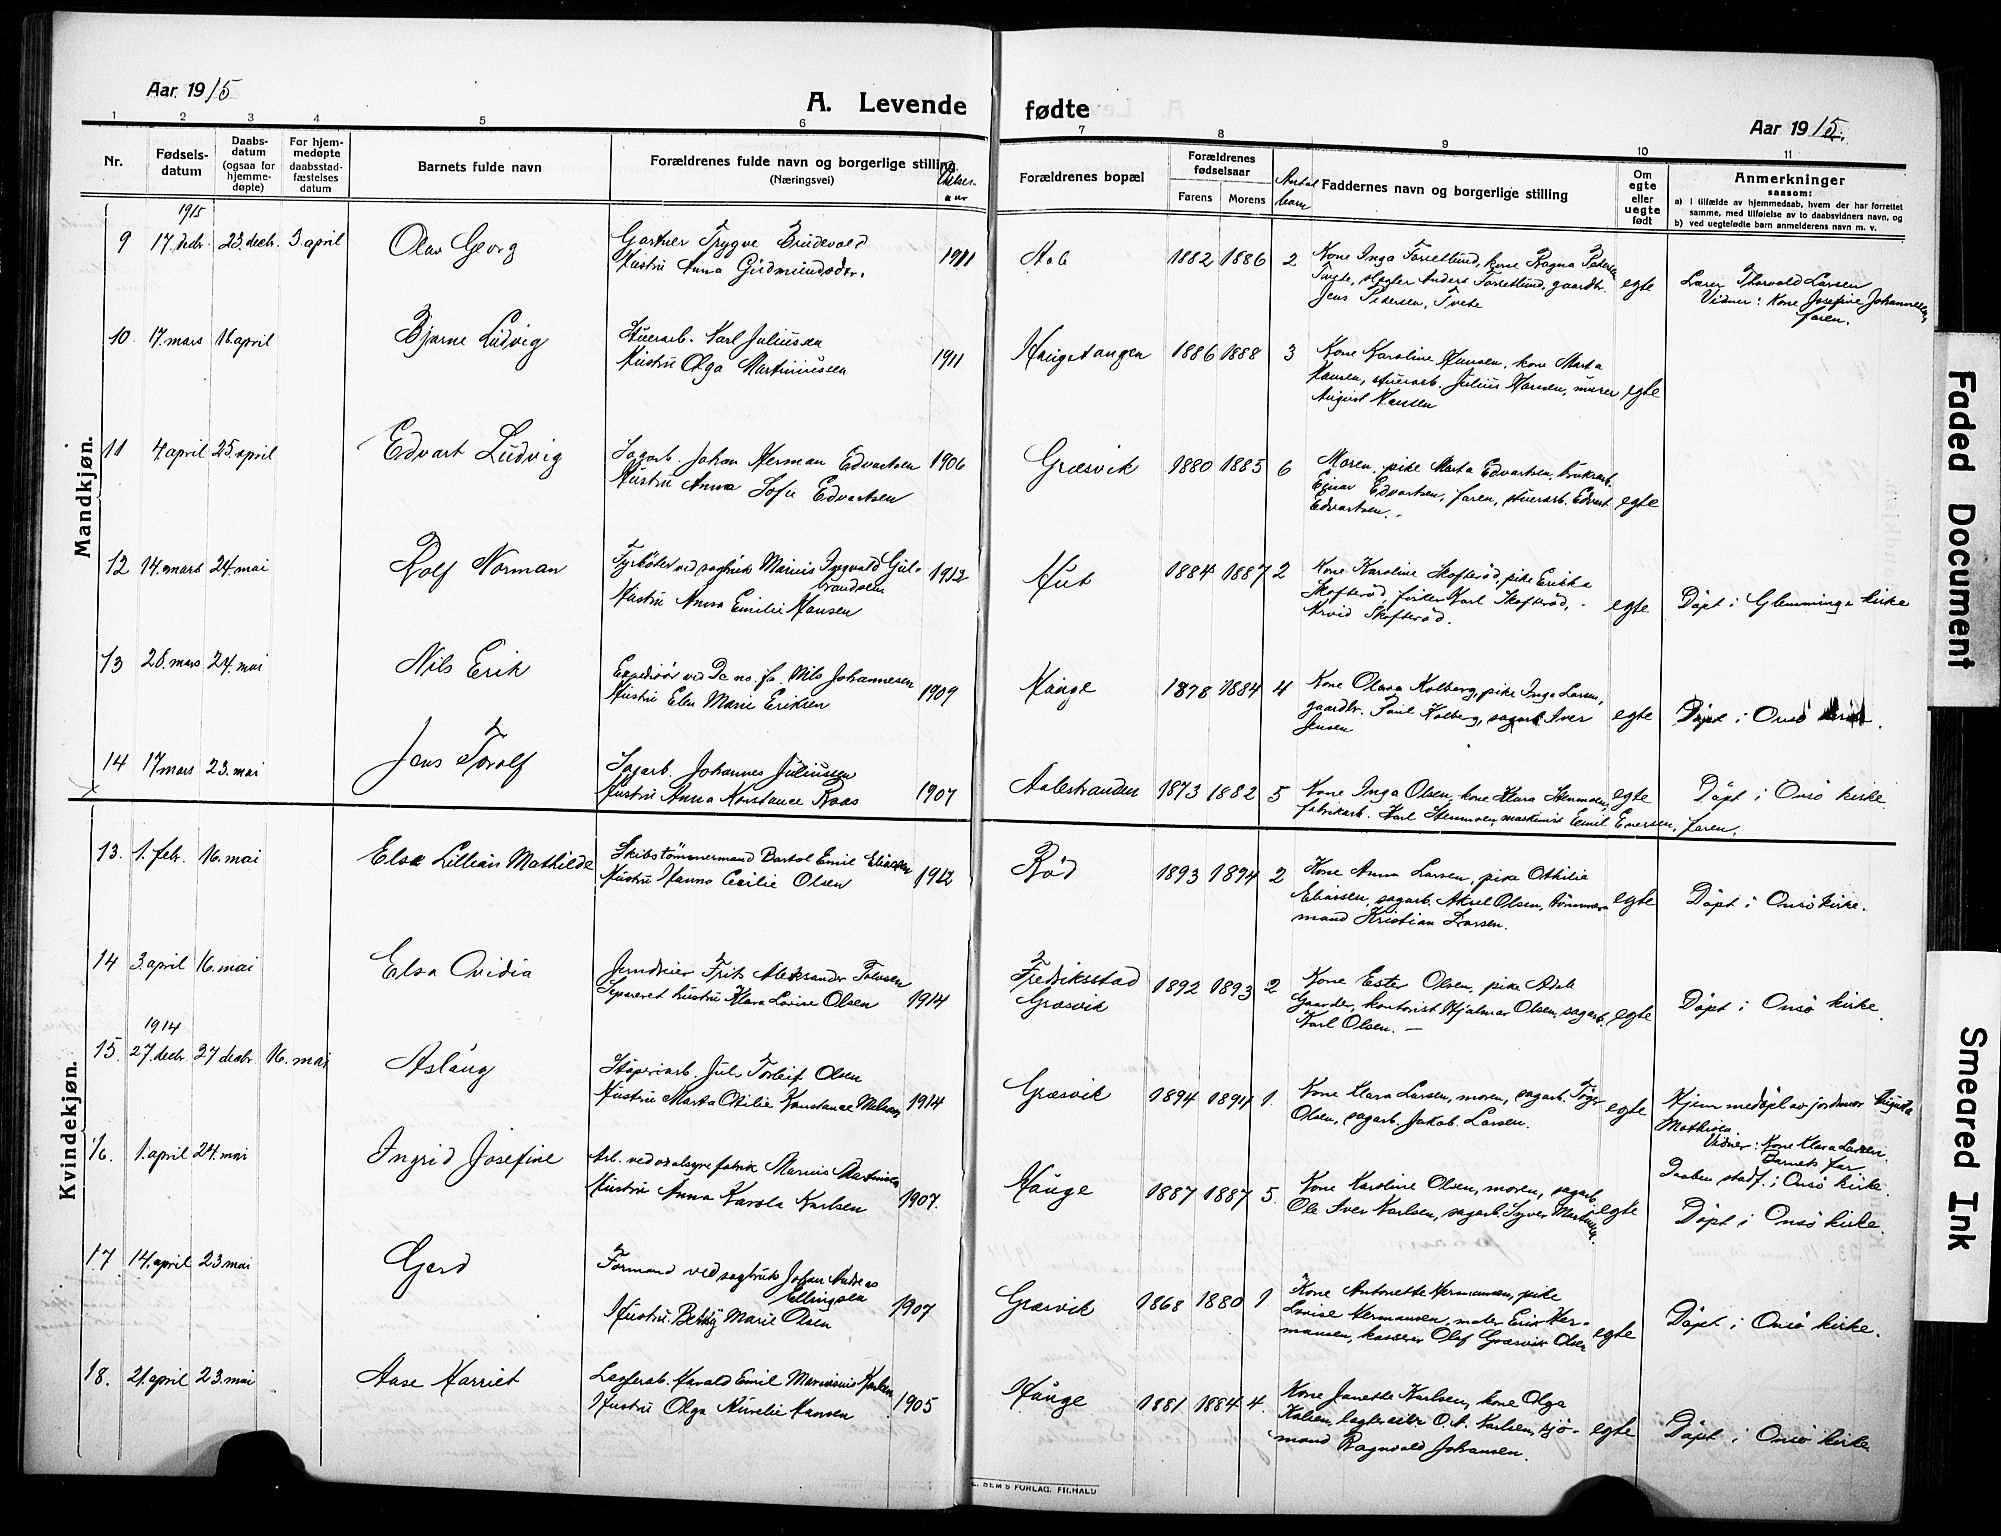 Aar 1915
A. Levende fødte
Aar 1915.
1 2 3 4 5 6 7 8 9 10 11
Nr.
Fødsels-
datum
Daabs-
datum
(ogsaa for
hjemme-
døpte)
For hjem-
medøpte
daabsstad-
fæstelses
datum
Barnets fulde navn
Forældrenes fulde navn og borgerlige stilling
(Næringsvei)
Forældrenes bopæl
Forældrenes
fødselsaar
Farens Morens
Antal
barn
Faddernes navn og borgerlige stilling
Om
egte
eller
uegte
født
Anmerkninger
saasom:
a) i tilfælde av hjemmedaab, hvem der har forrettet
samme, med tilføielse av to daabsvidners navn, og
b) ved uegtefødte barn anmelderens navn m. v.
Mandkjøn.
1915
9 17. decbr. 23. decb. 3. april Olav Georg
Gartner Trygve
Hustru Anna Gudmundsdtr. 1911
Aale 1882 1886 2
Kone Inga Torsetlund, kone Ragna Pedersen
Tvete, slagter Anders Torsetlund, gaardbr.
Jens Pedersen, Tvete
egte
Lærer Thorvald Larsen
Vidner: Kone Josefine Johannessen
faren.
10. 17. mars 16. april Bjarne Ludvig
Stuerarb. Karl Juliussen
Hustru Olga Martiniussen 1911
Haugetangen 1886 1888 3
Kone Karoline Hansen, kone Marta
Hansen, stuerarb. Julius Hansen, murer
August Hansen
egte
11 4 april 25. april Edvart Ludvig
Sagarb. Johan Herman Edvartsen 1906
Hustru Anna Sofie Edvartsen
Græsvik 1880 1885 6
Moren, pike Marta Edvartsen, bruksarb.
Einar Edvartsen, faren, stuerarb. Edvart
Edvartsen. -
egte
12 14. mars 24. mai Rolf Norman
Fyrbøter ved sagbruk Marius Ingvald Gul-
brandsen 1912
Hustru Anna Emilie Hansen
Hut 1884 1887 2
Kone Karoline Skofterød, pike Ericka
Skofterød, fisker Karl Skofterød, -
Arvid Skofterød.
egte
Døpt i Glemminge kirke
13 28. mars 24. mai Nils Erik
Expeditør ved Da no. fa. Nils Johannesen
Hustru Elen Marie Eriksen 1909
Hauge 1878 1884 4
Kone Olava Kolberg, pike Inga Larsen,
gaardbr. Paul Kolberg, sagarb. Iver
Jensen
egte
Døpt i Onsø kirke.
14 17 mars 23. mai Jens Torolf
Sagarb. Johannes Juliussen
Hustru Anna Konstance Roos 1907
Aalestranden 1873 1882 5
Kone Inga Olsen, kone Klara Stenmoen,
fabrikarb. Karl Stenmoen, maskinist Emil Enersen, faren.
egte
Døpt i Onsø kirke
Kvindekjøn.
13. 1. febr. 16. mai Elsa Lillian Mathilde
Skibstømmermand Bartol Emil Eliassen
Hustru Hanna Cecilie Olsen 1912
Rød 1893 1894 2
Kone Anna Larsen, pike Othilia
Eliassen, sagarb. Aksel Olsen, tømmer-
mand Kristian Larsen.
egte
Døpt i Onsø kirke.
14 3. april 16. mai Elsa Ovidia
Jerndreier Frits Aleksander
Separeret hustru Klara Lovise Olsen 1914
Fredriksstad
Græsvik 1892 1893 2
Kone Ester Olsen, pike Adele
Gaarder, kontorist Hjalmar Olsen, sagarb.
Karl Olsen. -
egte
Døpt i Onsø kirke.
1914
15. 27. decbr. 27 decbr. 16. mai Aslaug
Støperiarb. Jul Torleif Olsen
Hustru Marta Otilie Konstance 1914
Græsvik 1894 1894 1.
Kone Klara Larsen, moren, sagarb.
Olsen, sagarb. Jakob Larsen.
egte
Hjemmedøpt av jordmor Augusta
Mathisen
Vidner: Kone Klara Larsen.
Barnets far
Daaben stadf. i Onsø kirke.
16. 1. april 24. mai Ingrid Josefine
Arb. ved oxalsyrefabrik Marius Martinsen
Hustru Anna Karola Karlsen 1907.
Hauge 1887 1887 5.
Kone Karoline Olsen, moren, sagarb.
Ole Iver Karlsen, sagarb. Syver Martinsen.
egte
Døpt i Onsø kirke.
17 14. april 23 mai Gerd
Formand ved sagbruk Johan Andreas
Ellingsen
Hustru Betsy Marie Olsen 1907
Græsvik 1868 1880 1
Kone Antonette Hermansen, pike
Lovise Hermansen, maler Erik Her-
mansen, kasserer Olof Græsvik Olsen
egte
Døpt i Onsø kirke.
18. 21. april 23. mai Aase Harriet
Lagerarb. Harald Emil Marinius Karlsen
Hustru Olga Aurelie Hansen 1905
Hauge 1881 1884 4.
Kone Janette Karlsen, kone Olga
Karlsen, O. A. Karlsen, sjø-
mand Ragnvald Johansen.
egte
Døpt i Onsø kirke.
SEM'S FORLAG, FR.HALD
Faded Document
Smeared Ink